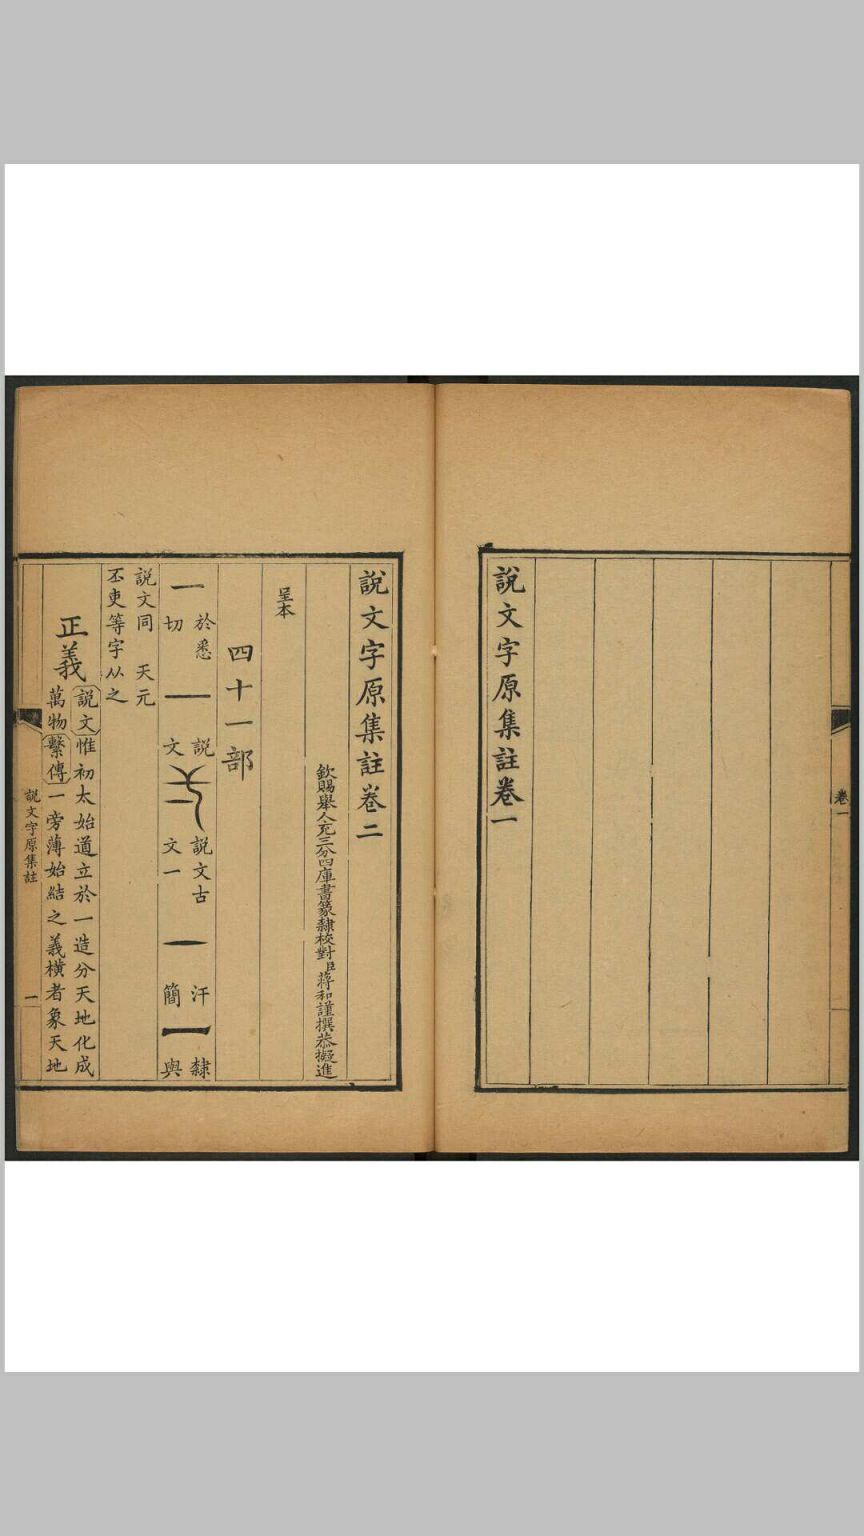 卷一
說文字原集註卷一
說文字原集註卷二
欽賜舉人充三分四庫書篆隸校對臣蔣和謹撰恭擬進
呈本
四十一部
一於悉切一說文弌說文古文一一汗簡一隸與
說文同 天元
丕吏等字从之
正義說文惟初太始道立於一造分天地化成
萬物繫傳一旁薄始結之義橫者象天地
說文字原集註 一